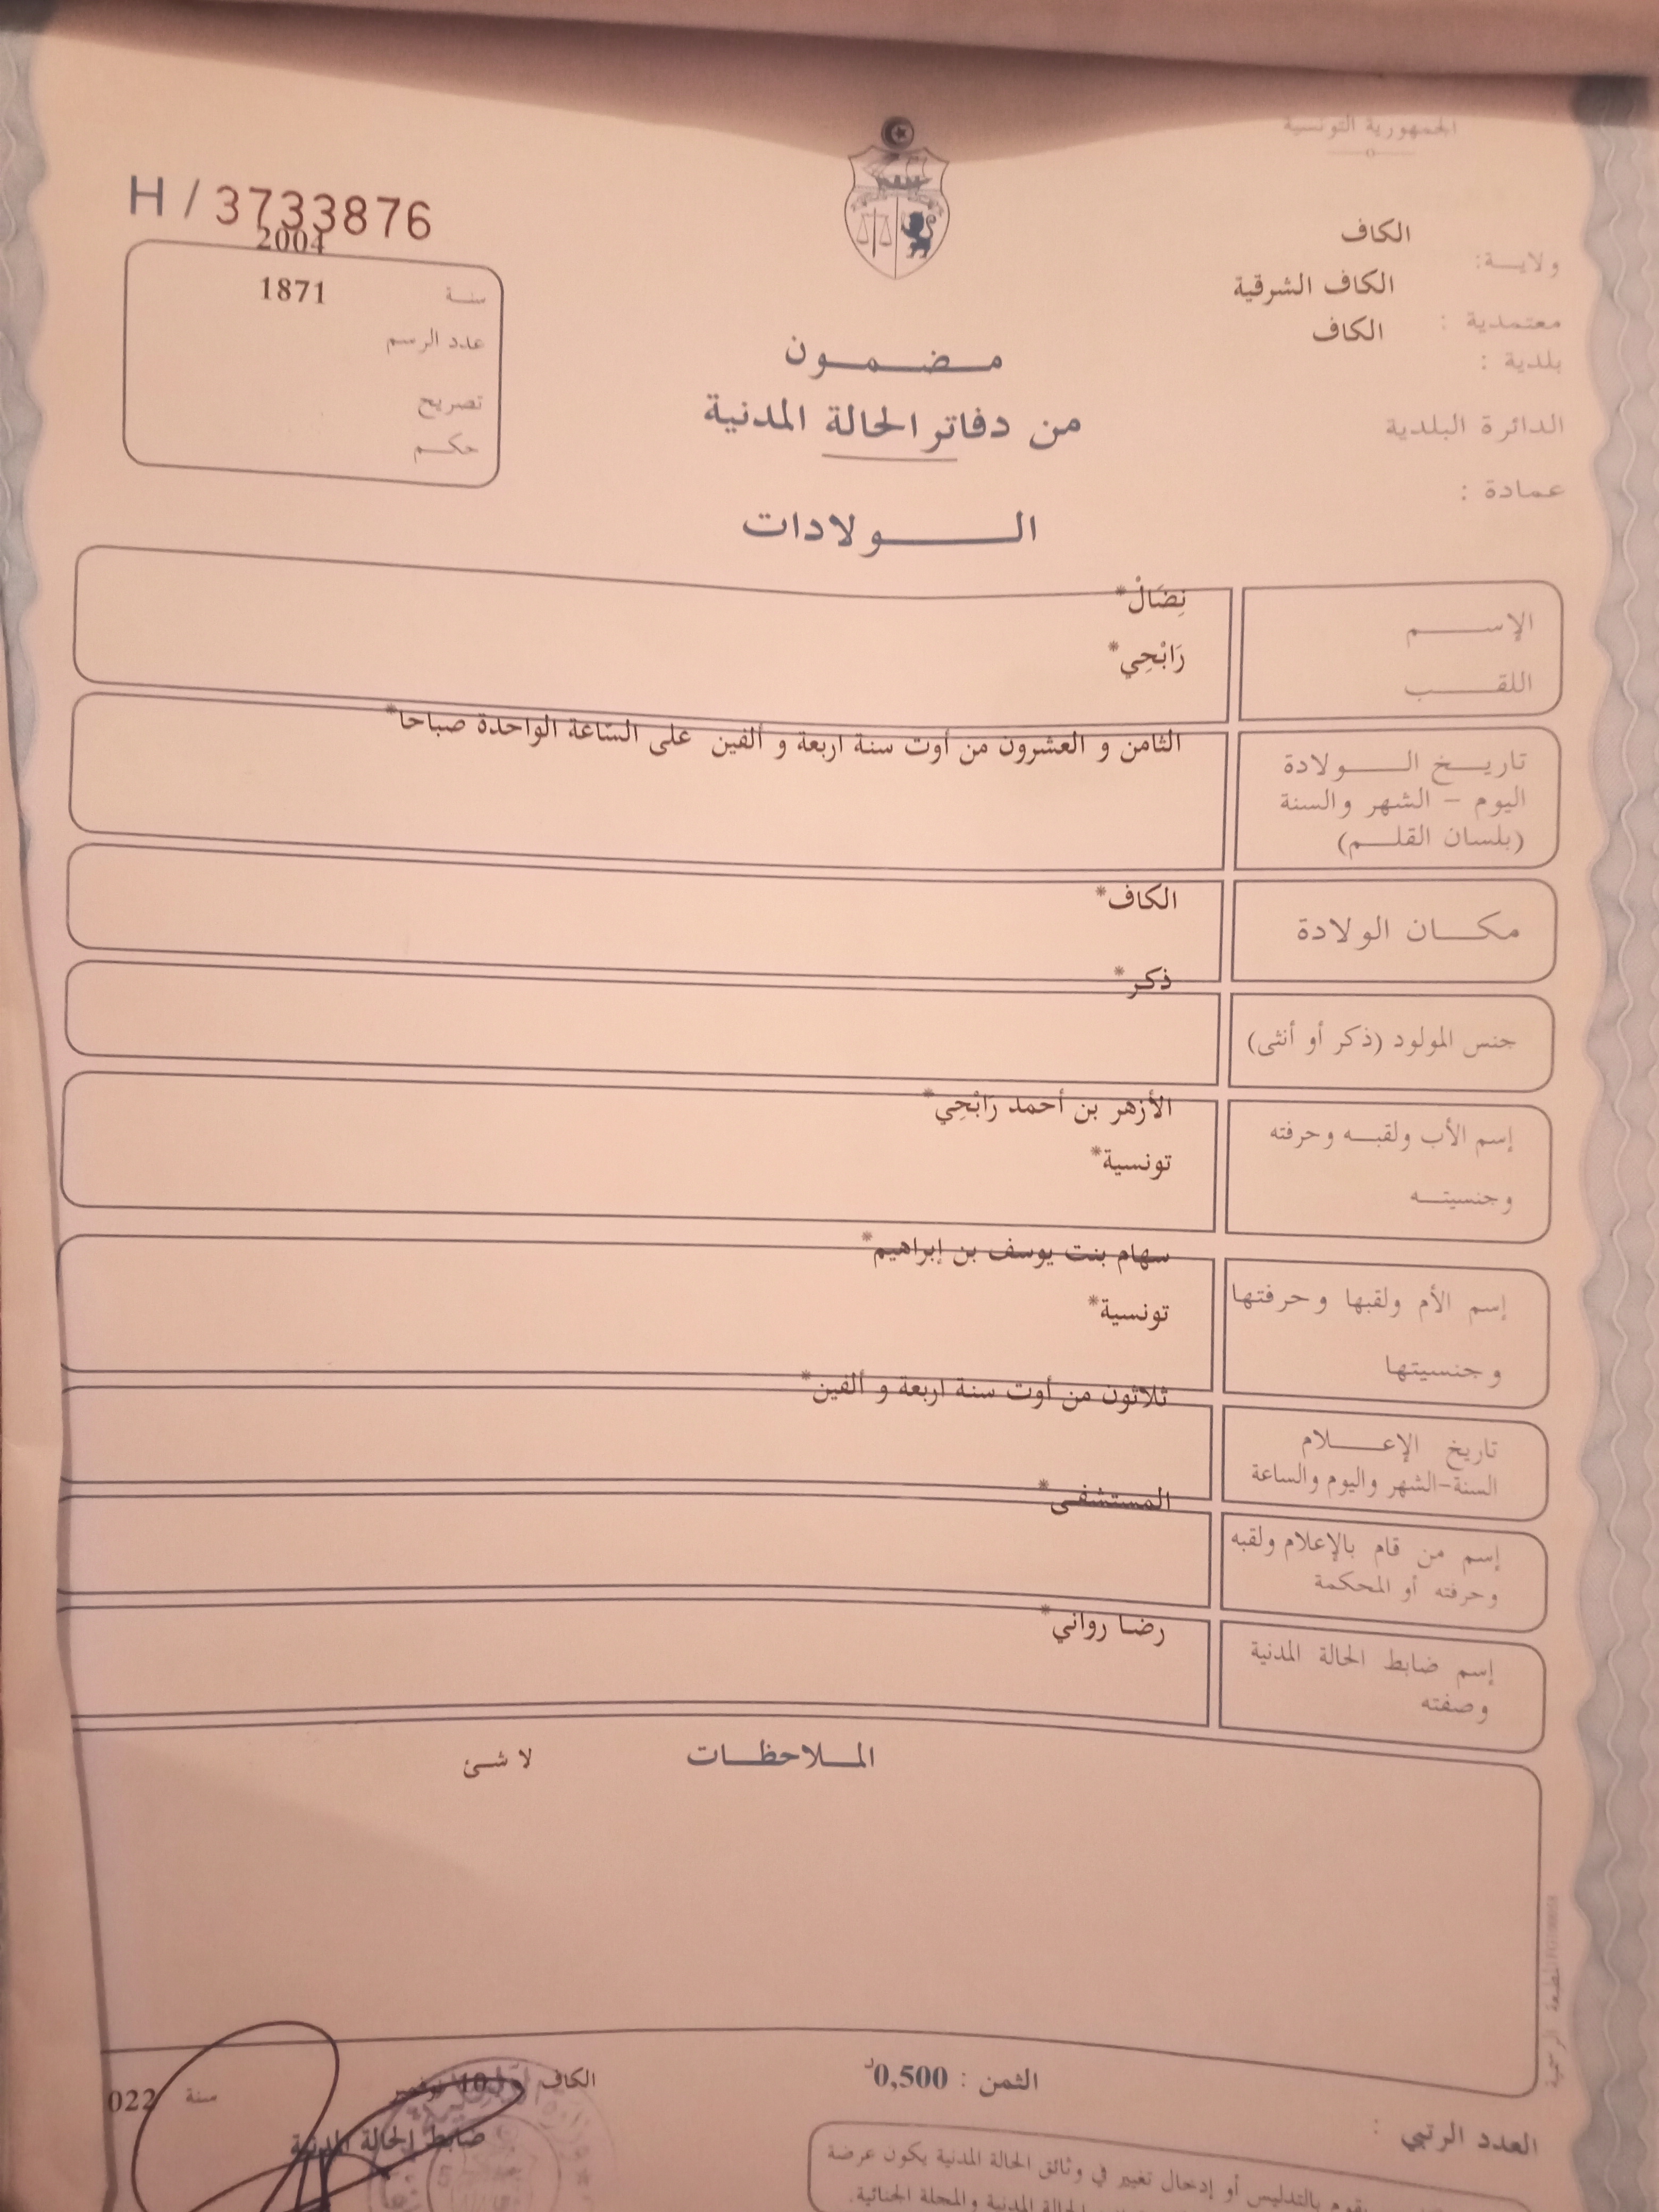 الجمهورية التونسية
H / 3733876
2004
سنة 1871
عدد الرسم
تصريح
حكم
ولاية: الكاف
معتمدية : الكاف الشرقية
بلدية : الكاف
الدائرة البلدية
عمادة :
مضمون
من دفاتر الحالة المدنية
الولادات
الإسم نِضَالْ*
اللقب رَابْحِي*
تاريخ الولادة الثامن و العشرون من أوت سنة اربعة و ألفين على السّاعة الواحدة صباحا*
اليوم - الشهر والسنة
(بلسان القلم)
مكان الولادة الكاف*
ذكر*
جنس المولود (ذكر أو أنثى)
إسم الأب ولقبه وحرفته الأزهر بن أحمد رَابْحِي*
وجنسيته تونسية*
إسم الأم ولقبها وحرفتها سهام بنت يوسف بن إبراهيم*
وجنسيتها تونسية*
تاريخ الإعلام ثلاثون من أوت سنة اربعة و ألفين*
السنة-الشهر واليوم والساعة
المستشفى*
إسم من قام بالإعلام ولقبه
وحرفته أو المحكمة
رضا رواني*
إسم ضابط الحالة المدنية
وصفته
الملاحظات لا شئ
المطبعة الرسمية
الثمن : 0,500د
الكاف 10 نوفمبر سنة 022
ضابط الحالة المدنية
العدد الرتبي :
يقوم بالتدليس أو إدخال تغيير في وثائق الحالة المدنية يكون عرضة
الحالة المدنية والمجلة الجنائية.